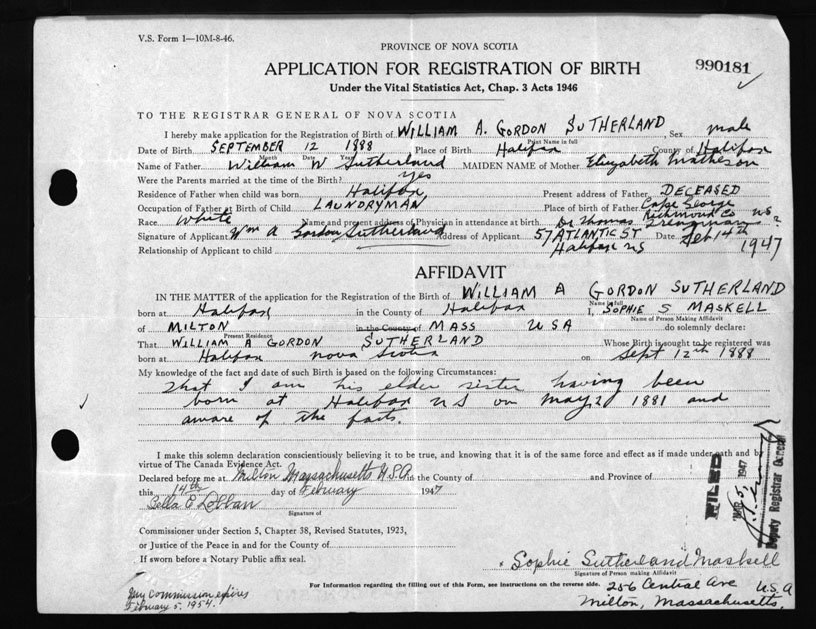 V.S. Form 1—10M-8-46.
PROVINCE OF NOVA SCOTIA
APPLICATION FOR REGISTRATION OF BIRTH
990181
Under the Vital Statistics Act, Chap. 3 Acts 1946
TO THE REGISTRAR GENERAL OF NOVA SCOTIA
I hereby make application for the Registration of Birth of WILLIAM A. GORDON SUTHERLAND, Sex male
Print Name in full
Date of Birth SEPTEMBER 12 1888 Place of Birth Halifax County of Halifax
Month Date Year
Name of Father William W Sutherland MAIDEN NAME of Mother Elizabeth Matheson
Were the Parents married at the time of the Birth? yes
Residence of Father when child was born Halifax Present address of Father DECEASED
Occupation of Father at Birth of Child LAUNDRYMAN Place of birth of Father Cape George Richmond Co NS
Race White Name and present address of Physician in attendance at birth Dr Thomas ?
Signature of Applicant Wm A Gordon Sutherland Address of Applicant 57 ATLANTIC ST Date Feb 14th
Halifax NS 1947
Relationship of Applicant to child
AFFIDAVIT
IN THE MATTER of the application for the Registration of the Birth of WILLIAM A GORDON SUTHERLAND
Name in full
born at Halifax in the County of Halifax I, SOPHIE S MASKELL
Name of Person Making Affidavit
of MILTON in the County of MASS USA do solemnly declare:
Present Residence
That WILLIAM A GORDON SUTHERLAND Whose Birth is sought to be registered was
born at Halifax Nova Scotia on Sept 12th 1888
My knowledge of the fact and date of such Birth is based on the following Circumstances:
That I am his elder sister having been
born at Halifax NS on May 2 1881 and
aware of the facts.
I make this solemn declaration conscientiously believing it to be true, and knowing that it is of the same force and effect as if made under oath and by
virtue of The Canada Evidence Act.
Declared before me at Milton Massachusetts U.S.A. in the County of and Province of
this 14th day of February 1947
Signature of
Commissioner under Section 5, Chapter 38, Revised Statutes, 1923,
or Justice of the Peace in and for the County of
If sworn before a Notary Public affix seal.
FILED
MAR 5, 1947
Deputy Registrar General
Sophie Sutherland Maskell
Signature of Person making Affidavit
For Information regarding the filling out of this Form, see instructions on the reverse side.
256 Central Ave U.S.A
Milton, Massachusetts.
My Commission expires
February 5, 1954.